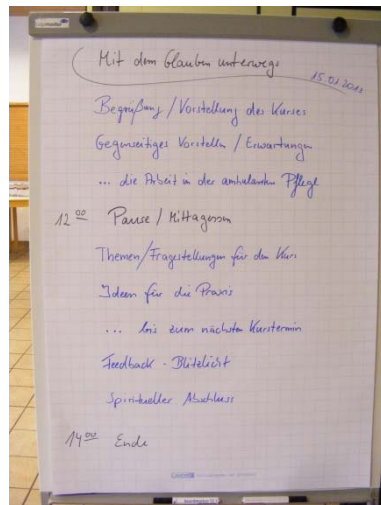 Mit dem Glauben unterwegs
15.01.2011
Begrüßung / Vorstellung des Kurses
Gegenseitiges Vorstellen / Erwartungen
... die Arbeit in der ambulanten Pflege
12 00 Pause / Mittagessen
Themen/Fragestellungen für den Kurs
Ideen für die Praxis
... bis zum nächsten Kurstermin
Feedback - Blitzlicht
Spiritueller Abschluss
14 00 Ende